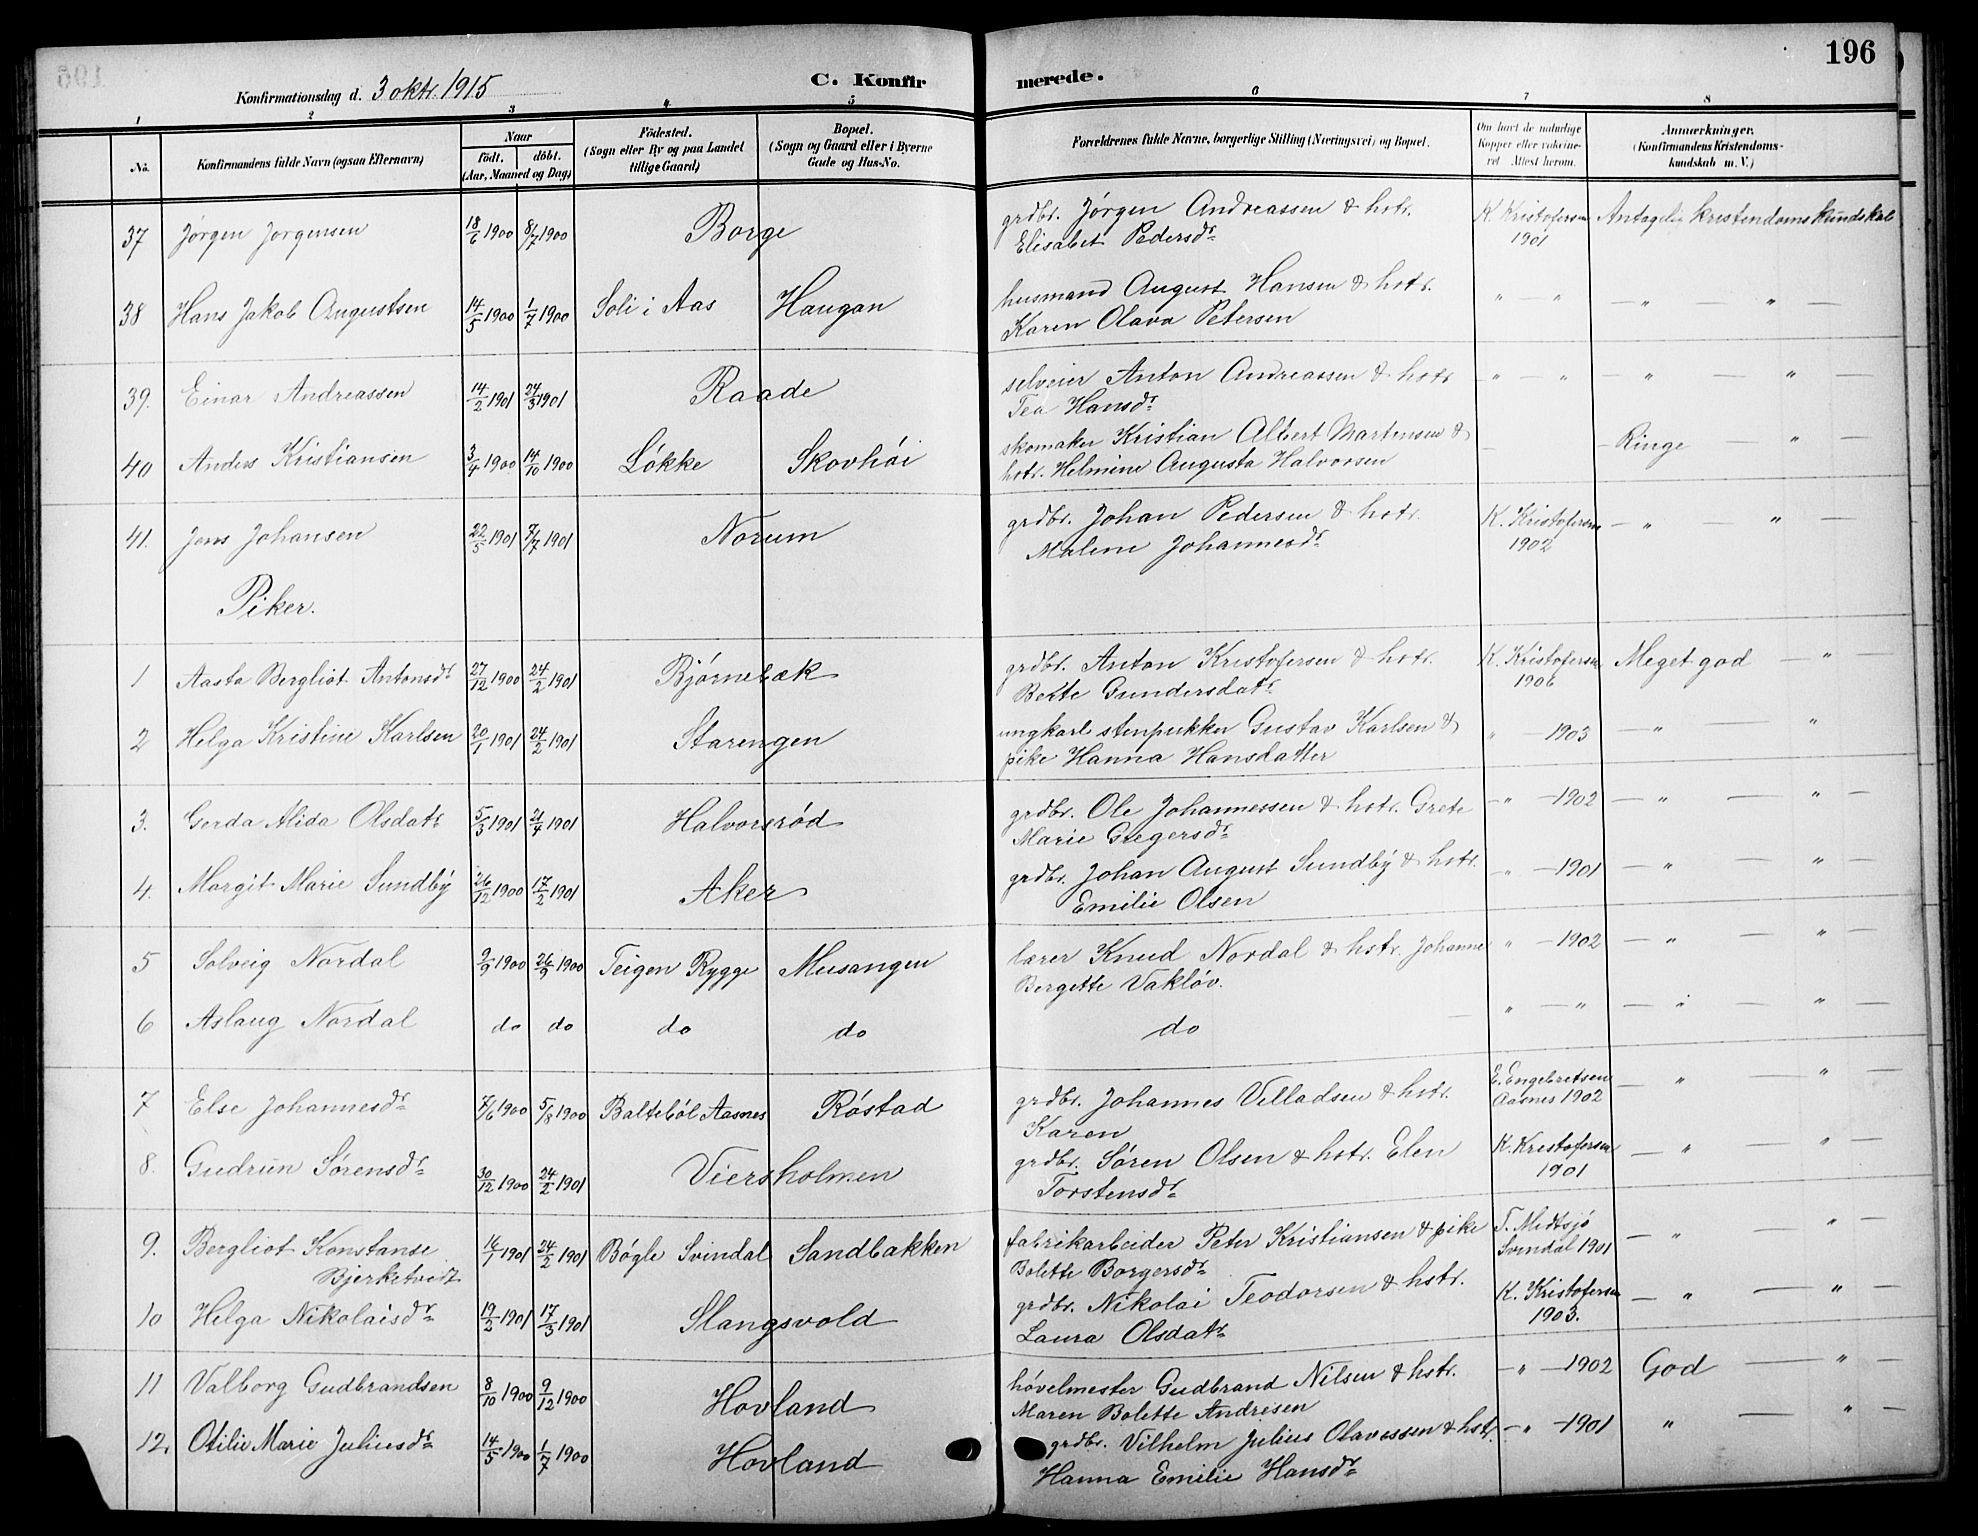 196
Konfirmationsdag d. 3 oktr. 1915
C. Konfirmerede.
1 2 3 4 5 6 7 8
No.
Konfirmandens fulde Navn (ogsaa Efternavn)
Naar
födt. döbt.
(Aar, Maaned og Dag)
Födested.
(Sogn eller By og paa Landet
tillige Gaard)
Bopæl.
(Sogn og Gaard eller i Byerne
Gade og Hus-No.
Forældrenes fulde Navne, borgerlige Stilling (Næringsvei) og Bopæl.
Om havt de naturlige
Kopper eller vakcine-
ret Attest herom.
Anmærkninger.
(Konfirmandens Kristendoms-
kundskab m. V.)
37 Jørgen Jørgensen 18/6 1900 8/7 1900 Borge grdbr. Jørgen Andreassen & hstr. K. Kristofersen Antagelig kristendomskundskab
Elisabet Pedersdr 1901
38 Hans Jakob Augustsen 14/5 1900 1/7 1900 Soli i Aas Haugan husmand August Hansen & hstr. " " — " — " —
Karen Olava Petersen
39. Einar Andreassen 14/2 1901 24/3 1901 Raade selveier Anton Andreassen & hstr — " — " — " — " —
Tea Hansdr
40 Anders Kristiansen 3/4 1900 14/10 1900 Løkke Skovhøi skomaker Kristian Albert Martinsen & — — Ringe — " —
hstr. Helmine Augusta Halvorsen
41. Jens Johansen 22/5 1901 7/7 1901 Norum grdbr. Johan Pedersen & hstr. K. Kristofersen — " — " —
Malene Johannesdr 1902
Piker.
1 Aasta Bergliot Antonsdr 27/12 1900 24/2 1901 Bjørnebæk grdbr. Anton Kristofersen & hstr. K. Kristofersen Meget god — " —
Berte Gundersdatr 1906
2 Helga Kristine Karlsen 20/1 1901 24/2 1901 Starengen ungkarl stenpukker Gustav Karlsen & " — 1903 — " — "
pike Hanna Hansdatter
3. Gerda Alida Olsdatr 5/3 1901 21/4 1901 Halvorsrød grdbr. Ole Johannessen & hstr. Grete — " — 1902 — " — " —
Marie Gregersdr
4. Margit Marie Sundby 26/12 1900 17/2 1901 Aker grdbr. Johan August Sundby & hstr. " — 1901 — " — " —
Emilie Olsen
5 Solveig Nordal 9/9 1900 26/9 1900 Teigen Rygge Musangen lærer Knud Nordal & hstr. Johanne " — 1902 — " — " —
Bergette Vakløv.
6 Aslaug Nordal do do do do do " — " — " — " —
7 Else Johannesdr 7/6 1900 5/8 1900 Baltebøl Aasnes Røstad grdbr. Johannes Villadsen & hstr. E. Engebretsen — " — " —
Karen Aasnes 1902
8. Gudrun Sørensdr 30/12 1900 24/2 1901 Viersholmen grdbr. Søren Olsen & hstr. Elen K. Kristofersen — " — " —
Torstensdr 1901
9. Bergliot Konstanse 16/1 1901 24/2 1901 Bøgle Svindal Sandbakken fabrikarbeider Peter Kristiansen & pike T. Midtsjø — " — " —
Bjerketvedt Bolette Borgersdr Svindal 1901
10 Helga Nikolaisdr 19/2 1901 17/3 1901 Slangsvold grdbr. Nikolai Teodorsen & hstr. K. Kristofersen — " — " —
Laura Olsdatr 1903.
11 Valborg Gudbrandsen 8/10 1900 9/12 1900 Hovland høvelmester Gudbrand Nilsen & hstr. — " — 1902 God — " —
Maren Bolette Andresen
12. Otilie Marie Juliusdr 14/5 1900 1/7 1900 Hovland grdbr. Vilhelm Julius Olavessen & hstr. — " — 1901 " — " —
Hanna Emilie Hansdr